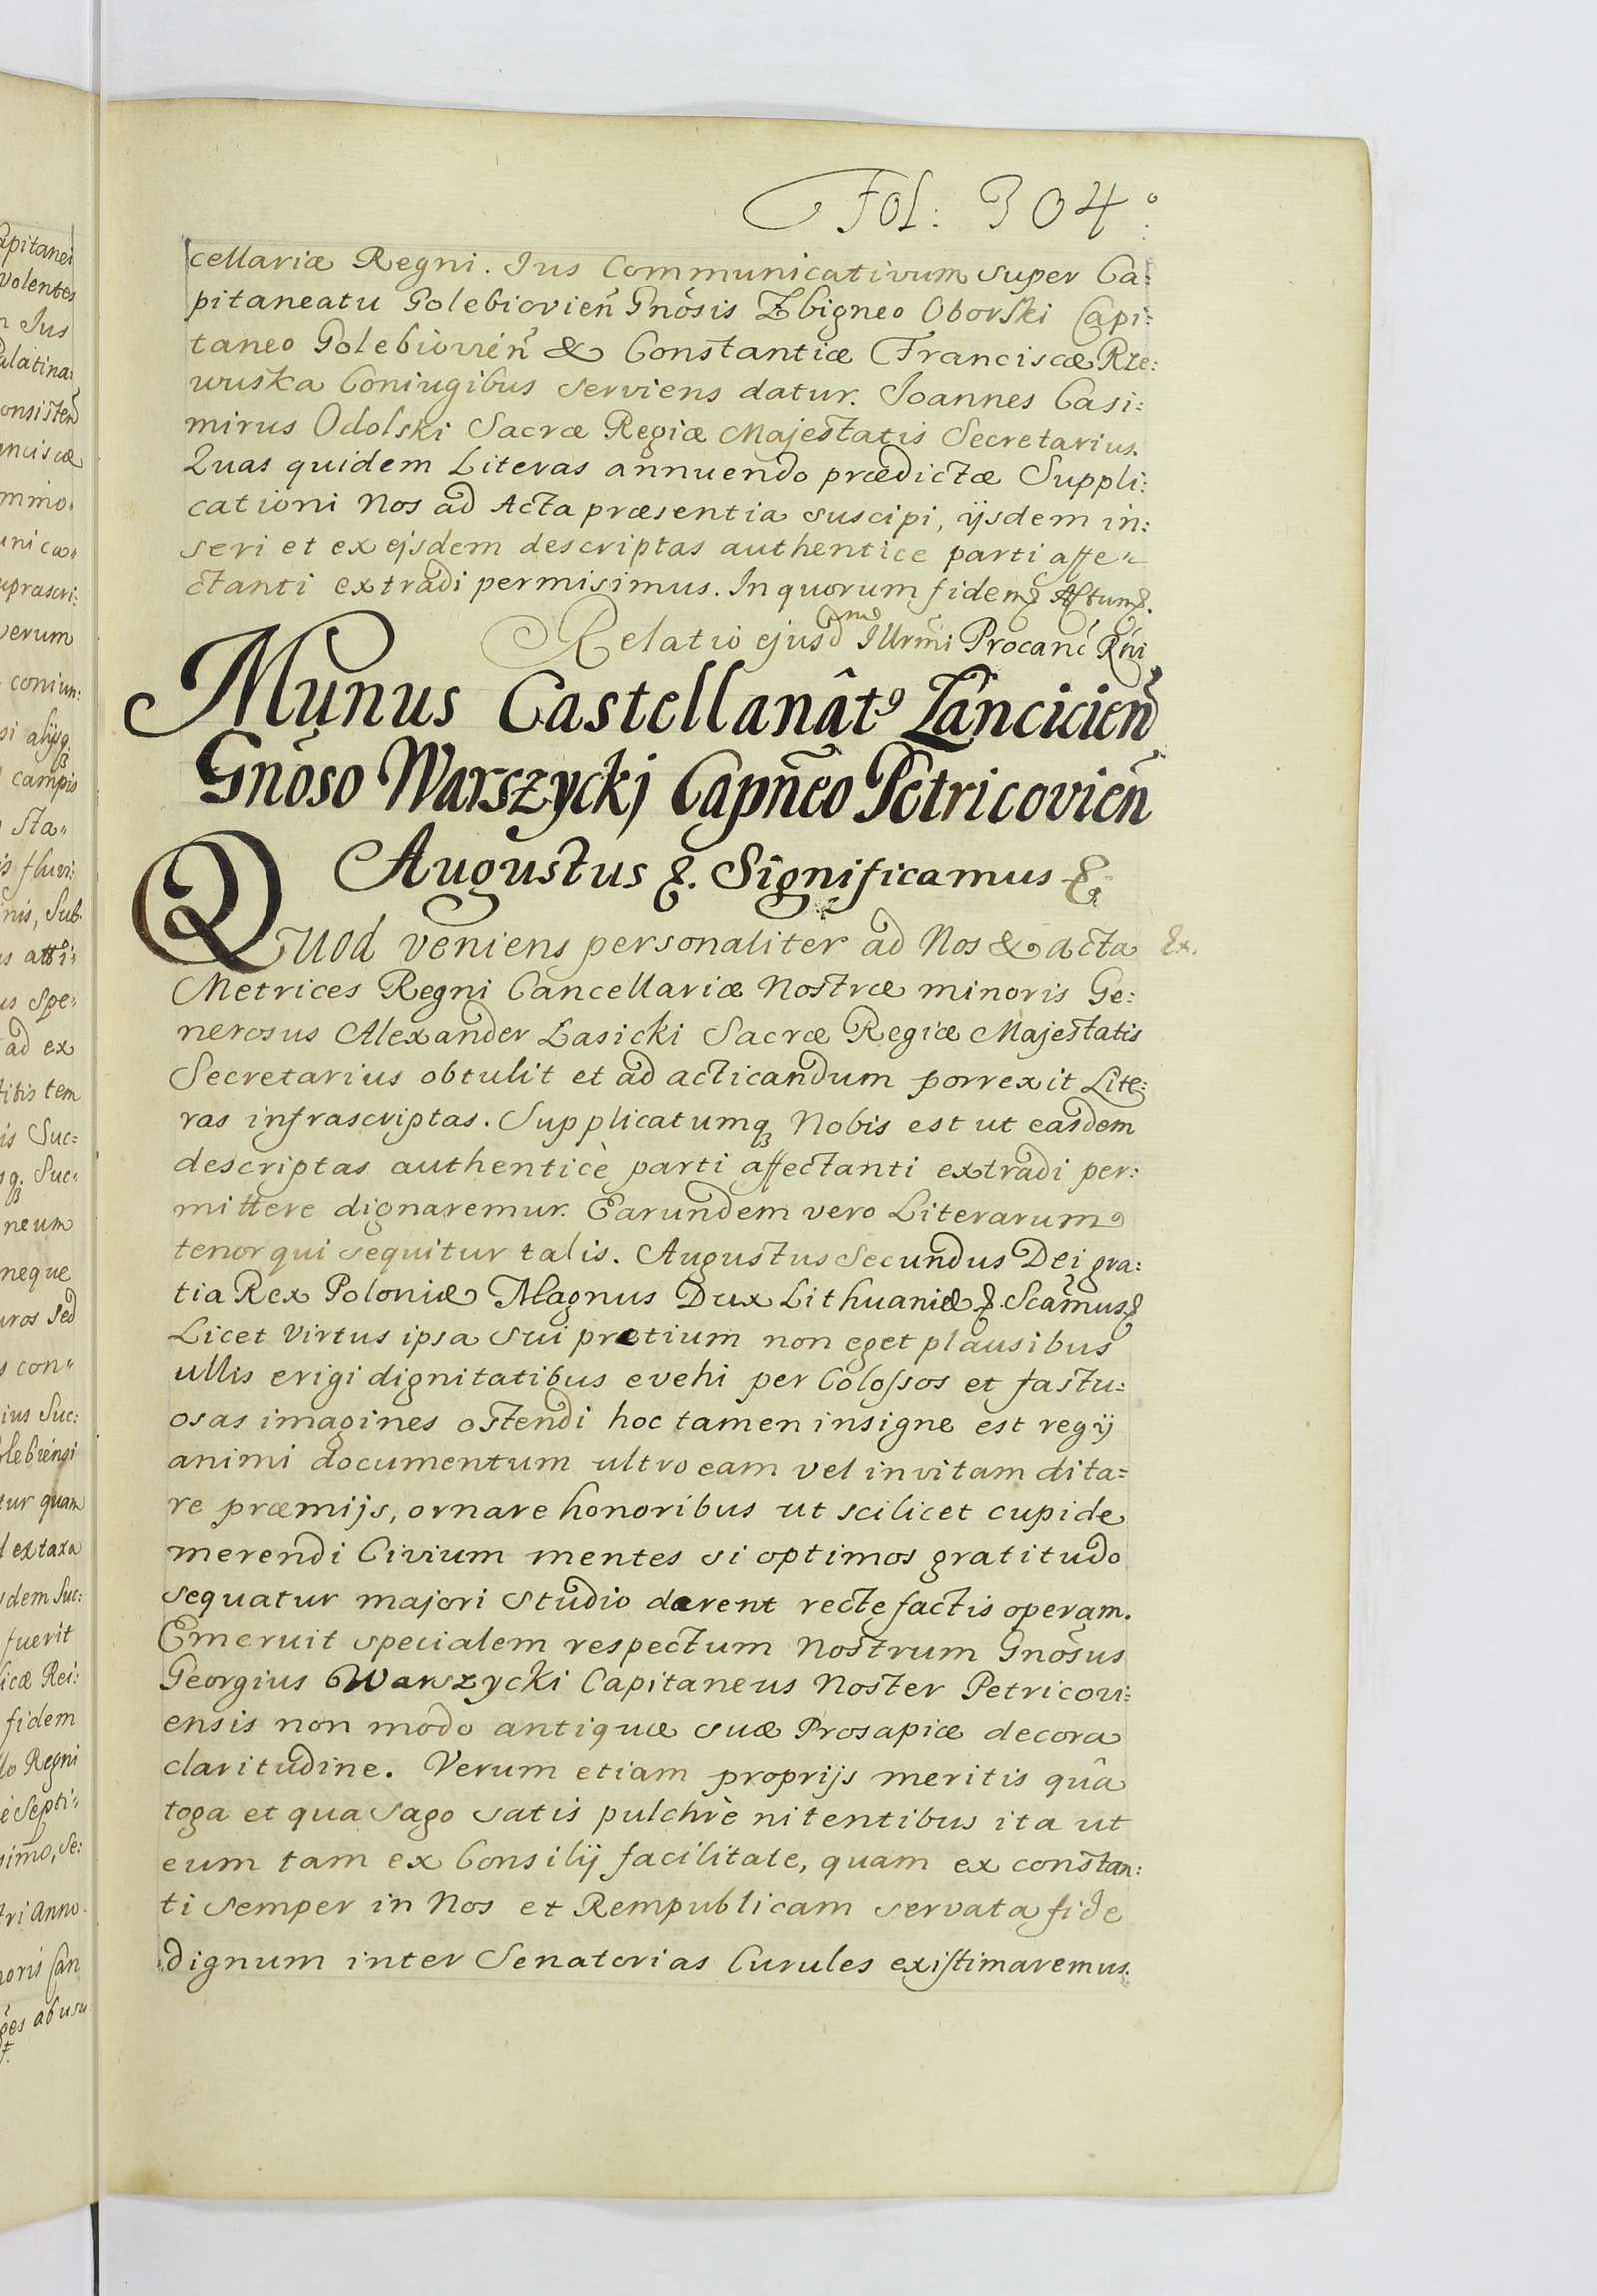 Fol: 304.
cellariæ Regni. Ius Communicativum super Ca:
pitaneatu Golebiovien̄ Gnōsis Zbigneo Oborski Capi:
taneo Golebiovien̄ & Constantiæ Franciscæ Rze:
wuska Coniugibus serviens datur. Joannes Casi:
mirus Odolski Sacræ Regiæ Majestatis Secretarius.
Quas quidem Literas annuendo prædictæ Suppli:
cationi Nos ad Acta præsentia suscipi, ijsdem in:
seri et ex ejsdem descriptas authentice parti affe=
ctanti extradi permisimus. In quorum fidem &. Actum &.
Relatio ejusd Illrmi Procanc Rni
Munus Castellanât9 Lancicien̄
Gnōso Warszyckj Capn̄eo Petricovien̄
Augustus &. Significamus &
Quod veniens personaliter ad Nos & acta Ex.
Metrices Regni Cancellariæ Nostræ minoris Ge:
nerosus Alexander Lasicki Sacræ Regiæ Majestatis
Secretarius obtulit et ad acticandum porrexit Lite:
ras infrascriptas. Supplicatumqꝫ Nobis est ut easdem
descriptas authenticè parti affectanti extradi per:
mittere dignaremur. Earundem vero Literarum
tenor qui sequitur talis. Augustus Secundus Dei gra:
tia Rex Poloniæ Magnus Dux Lithuaniæ &. Scām̄us &
Licet Virtus ipsa sui pretium non eget plausibus
ullis erigi dignitatibus evehi per Colossos et fastu:
osas imagines ostendi hoc tamen insigne est regij
animi documentum ultro eam vel invitam dita=
re præmijs, ornare honoribus ut scilicet cupide
merendi Civium mentes si optimos gratitudo
sequatur majori studio darent recte factis operam.
Emeruit specialem respectum Nostrum Gnōsus
Georgius Warszycki Capitaneus Noster Petricovi:
ensis non modo antiquæ suæ Prosapiæ decora
claritudine. Verum etiam proprijs meritis quâ
toga et qua sago satis pulchrè nitentibus ita ut
eum tam ex Consilij facilitate, quam ex constan:
ti semper in Nos et Rempublicam servata fide
dignum inter Senatorias Curules existimaremus.